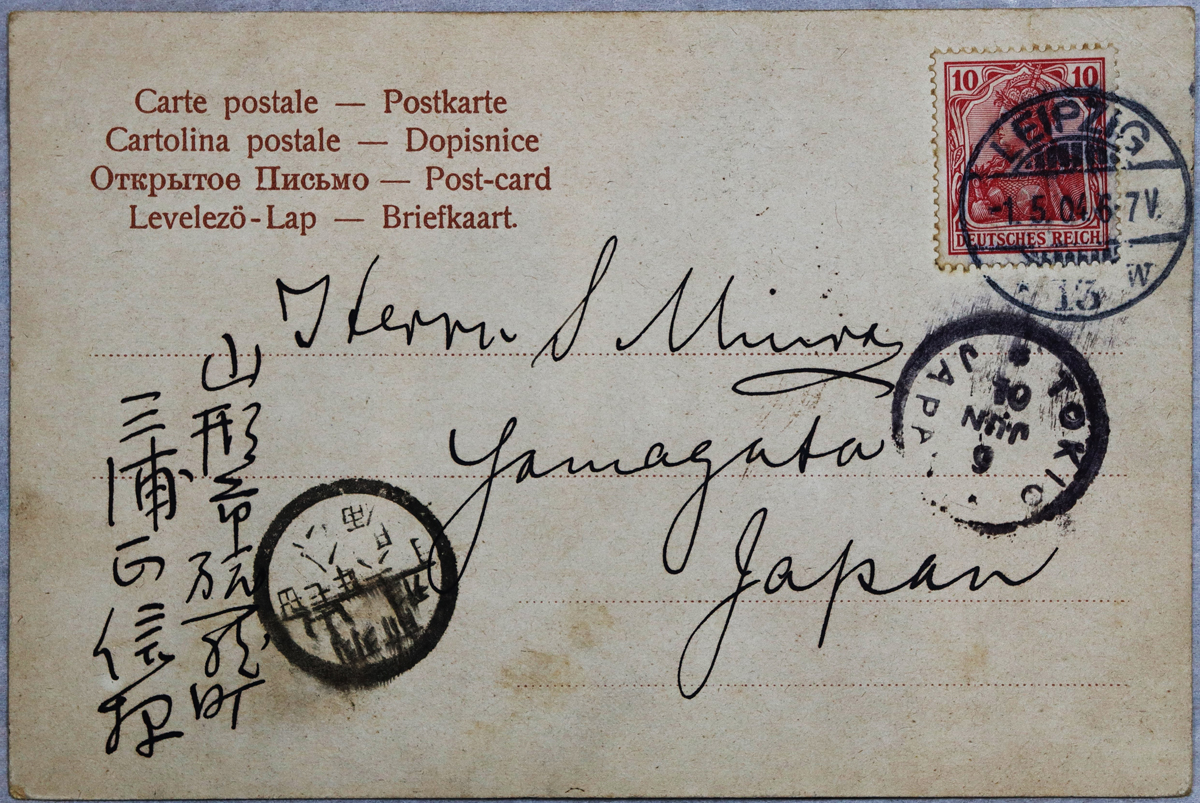 Carte postale — Postkarte
Cartolina postale — Dopisnice
Открытое Письмо — Post-card
Levelező-Lap — Briefkaart.
10 10
DEUTSCHES REICH
LEIPZIG
-1.5.04.6-7V.
13 W
Herrn S Miura
Yamagata
Japan
TOKIO
JAPA
6
JUN
04
山形市旅籠町
三浦正信